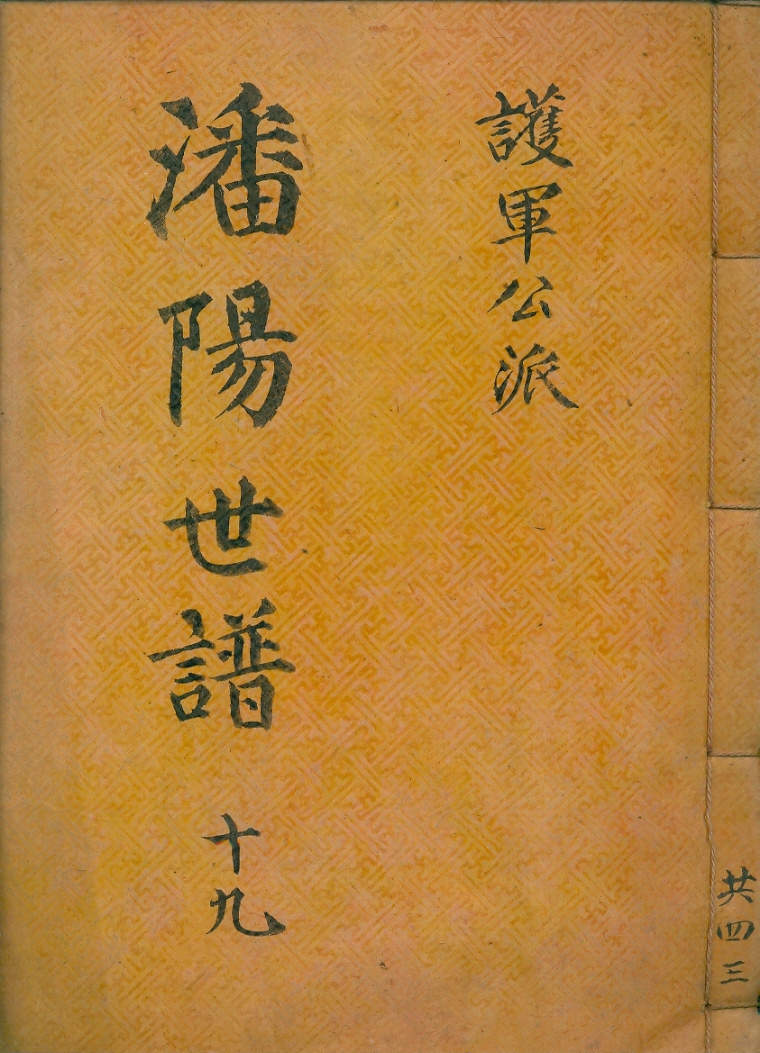 共四三
護軍公派
潘陽世譜 十九